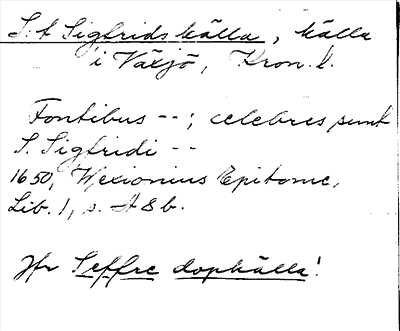 S:t Sigfrids källa, källa
i Växjö, Kron. l.
Fontibus --; celebres sunt
S. Sigfridi --
1650, Wexionius Epitome,
Lib. 1, s. A 8 b.
Jfr Seffre dopkälla!